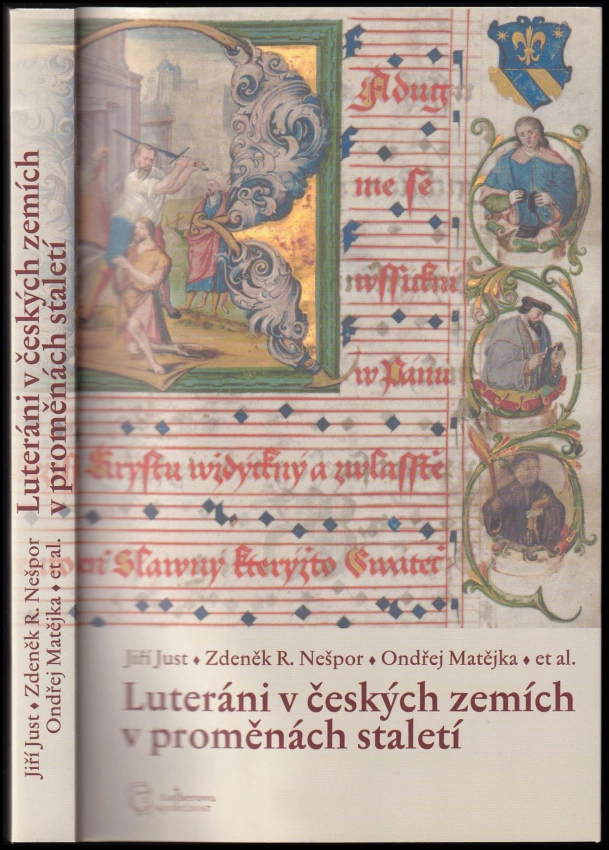 Luteráni v českých zemích
v proměnách staletí
Jiří Just ♦ Zdeněk R. Nešpor
Ondřej Matějka ♦ et al.
Radugi
me se
wssickni
w Pánu
Krystu wzdyckny a zwlasstě
Slawny kteryžto
Jiří Just ♦ Zdeněk R. Nešpor ♦ Ondřej Matějka ♦ et al.
Luteráni v českých zemích
v proměnách staletí
Lutherova
společnost